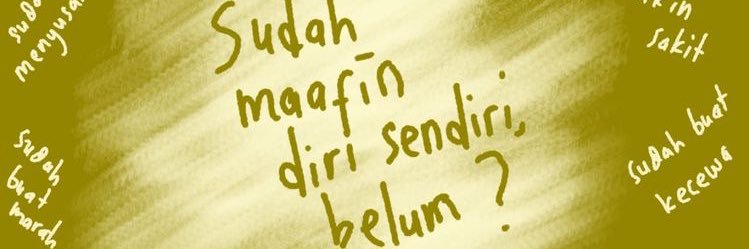 Sudah
maafin
diri sendiri,
belum?
menyusah
sudah
buat
marah
sakit
sudah buat
kecewa